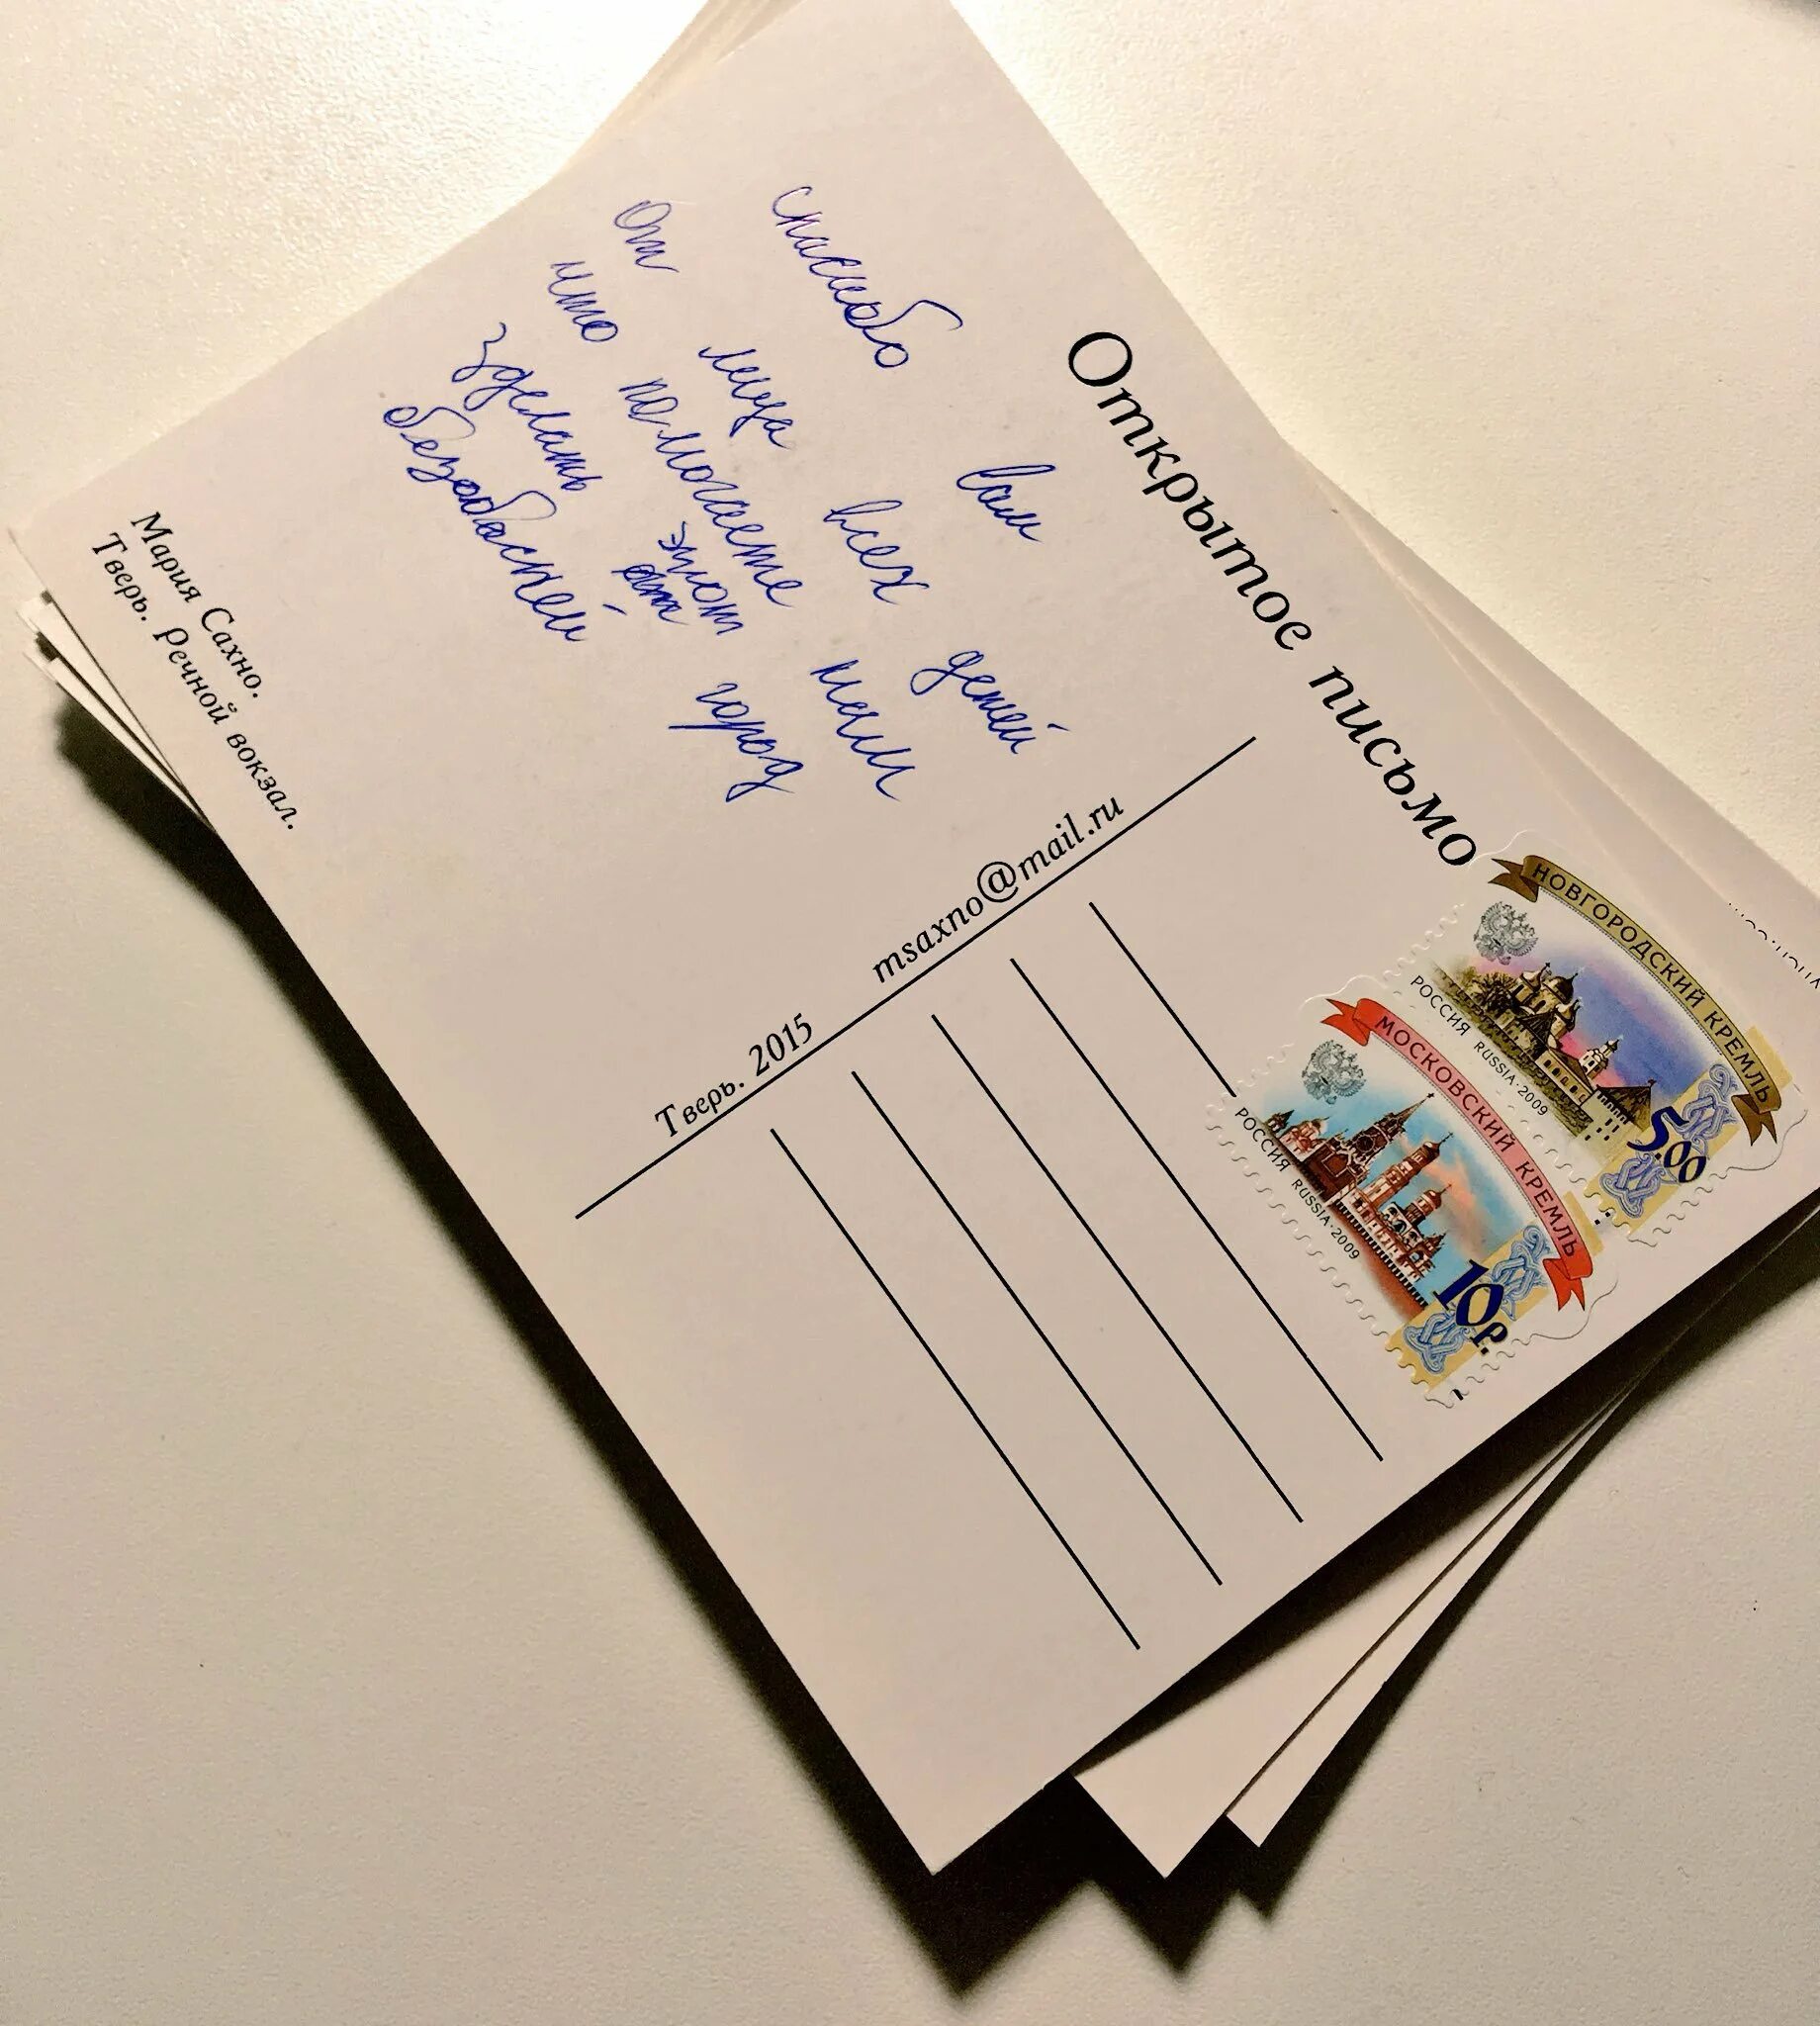 Открытое письмо
спасибо вам
От лица всех детей
что помогаете нам
зделать этот город
безобасней
Мария Сахно.
Тверь. Речной вокзал.
Тверь. 2015 msaxno@mail.ru
НОВГОРОДСКИЙ КРЕМЛЬ
РОССИЯ RUSSIA·2009
5.00
МОСКОВСКИЙ КРЕМЛЬ
РОССИЯ RUSSIA·2009
10Р.